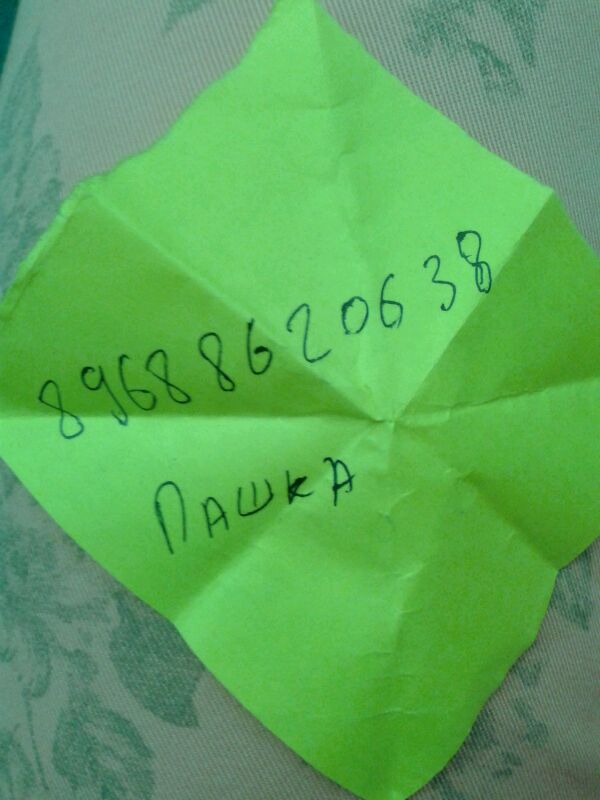 89688620638
Пашка